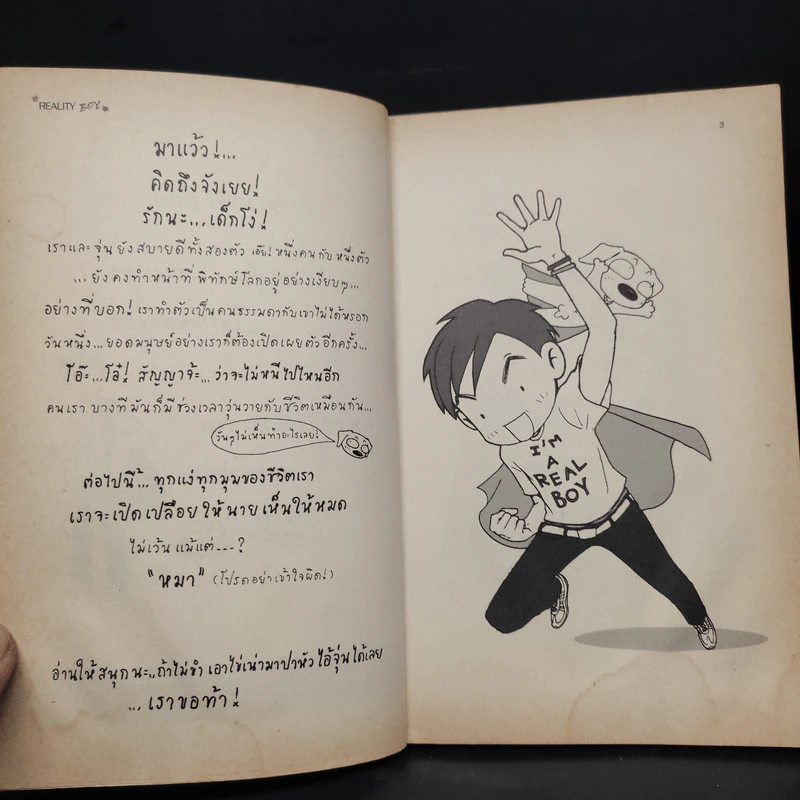 REALITY BOY
มาแว้ว!...
คิดถึงจังเยย!
รักนะ...เด็กโง่!
เราและ จุ่น ยังสบายดีทั้งสองตัว เอ๊ย! หนึ่งคน กับ หนึ่งตัว
...ยังคงทำหน้าที่ พิทักษ์โลกอยู่อย่างเงียบๆ...
อย่างที่บอก! เราทำตัวเป็นคนธรรมดากับเขาไม่ได้หรอก
วันหนึ่ง...ยอดมนุษย์อย่างเราก็ต้องเปิดเผยตัวอีกครั้ง...
โอ๊ะ...โอ๋! สัญญาจ้ะ... ว่าจะไม่หนีไปไหนอีก
คนเรา บางทีมันก็มีช่วงเวลาวุ่นวายกับชีวิตเหมือนกัน...
วันๆไม่เห็นทำอะไรเลย!
ต่อไปนี้... ทุกแง่ทุกมุมของชีวิตเรา
เราจะเปิดเปลือย ให้นายเห็นให้หมด
ไม่เว้นแม้แต่----?
"หมา" (โปรดอย่าเข้าใจผิด!)
อ่านให้สนุกนะ..ถ้าไม่ขำ เอาไข่เน่ามาปาหัวไอ้จุ่นได้เลย
... เราขอท้า!
3
I'M
A
REAL
BOY